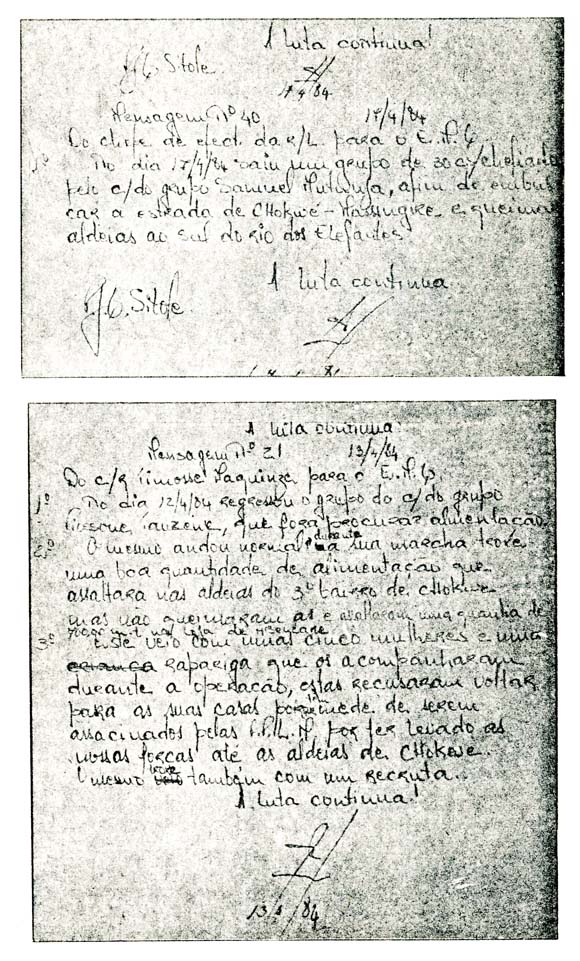 A luta continua!
Sitole
17/4/84
Mensagem Nº 40 17/4/84
Do chefe de elect. da R/L para o E.M.G
1º No dia 17/4/84 saiu um grupo de 30 chefiado
pelo c/do grupo Samuel, afim de embus
car a estrada de CHokwé - Massingire e queimar
aldeias ao sul do Rio dos Elefantes
A luta continua
Sitole.
A luta continua!
Mensagem Nº 21 13/4/84
Do c/R para o E.M.G
1º No dia 12/4/84 regressou o grupo do c/do grupo
que fora procurar alimentação.
2º O mesmo andou normal durante a sua marcha trove
uma boa quantidade de alimentação que
assaltara nas aldeias do 3º bairro de CHokwe
mas não queimaram as e assaltaram uma de
3º Este veio com umas cinco mulheres e uma
criança rapariga que os acompanharam
durante a operação, estas recusaram voltar
para as suas casas por medo de serem
assacinados pelas F.P.L.M, por ter levado as
nossas forças até as aldeias de CHokwe.
O mesmo trove também com um recruta.
A luta continua!
13/4/84